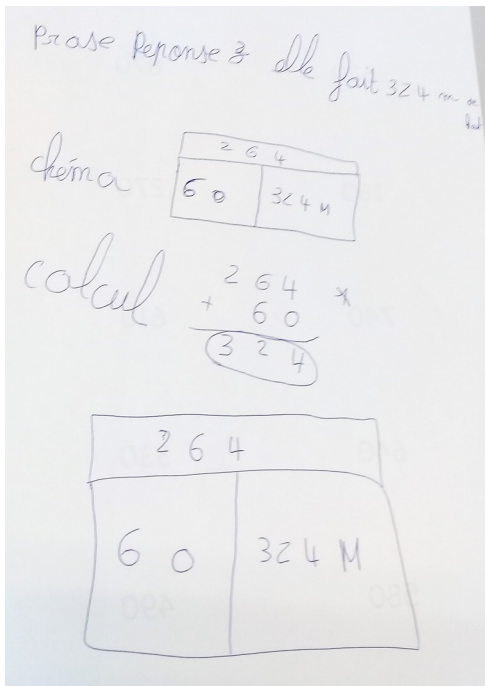 Prase Reponse 3 elle fait 324 m de
haut
chéma
264
60 324 M
colcul
264 *
+ 60
324
264
60 324 M